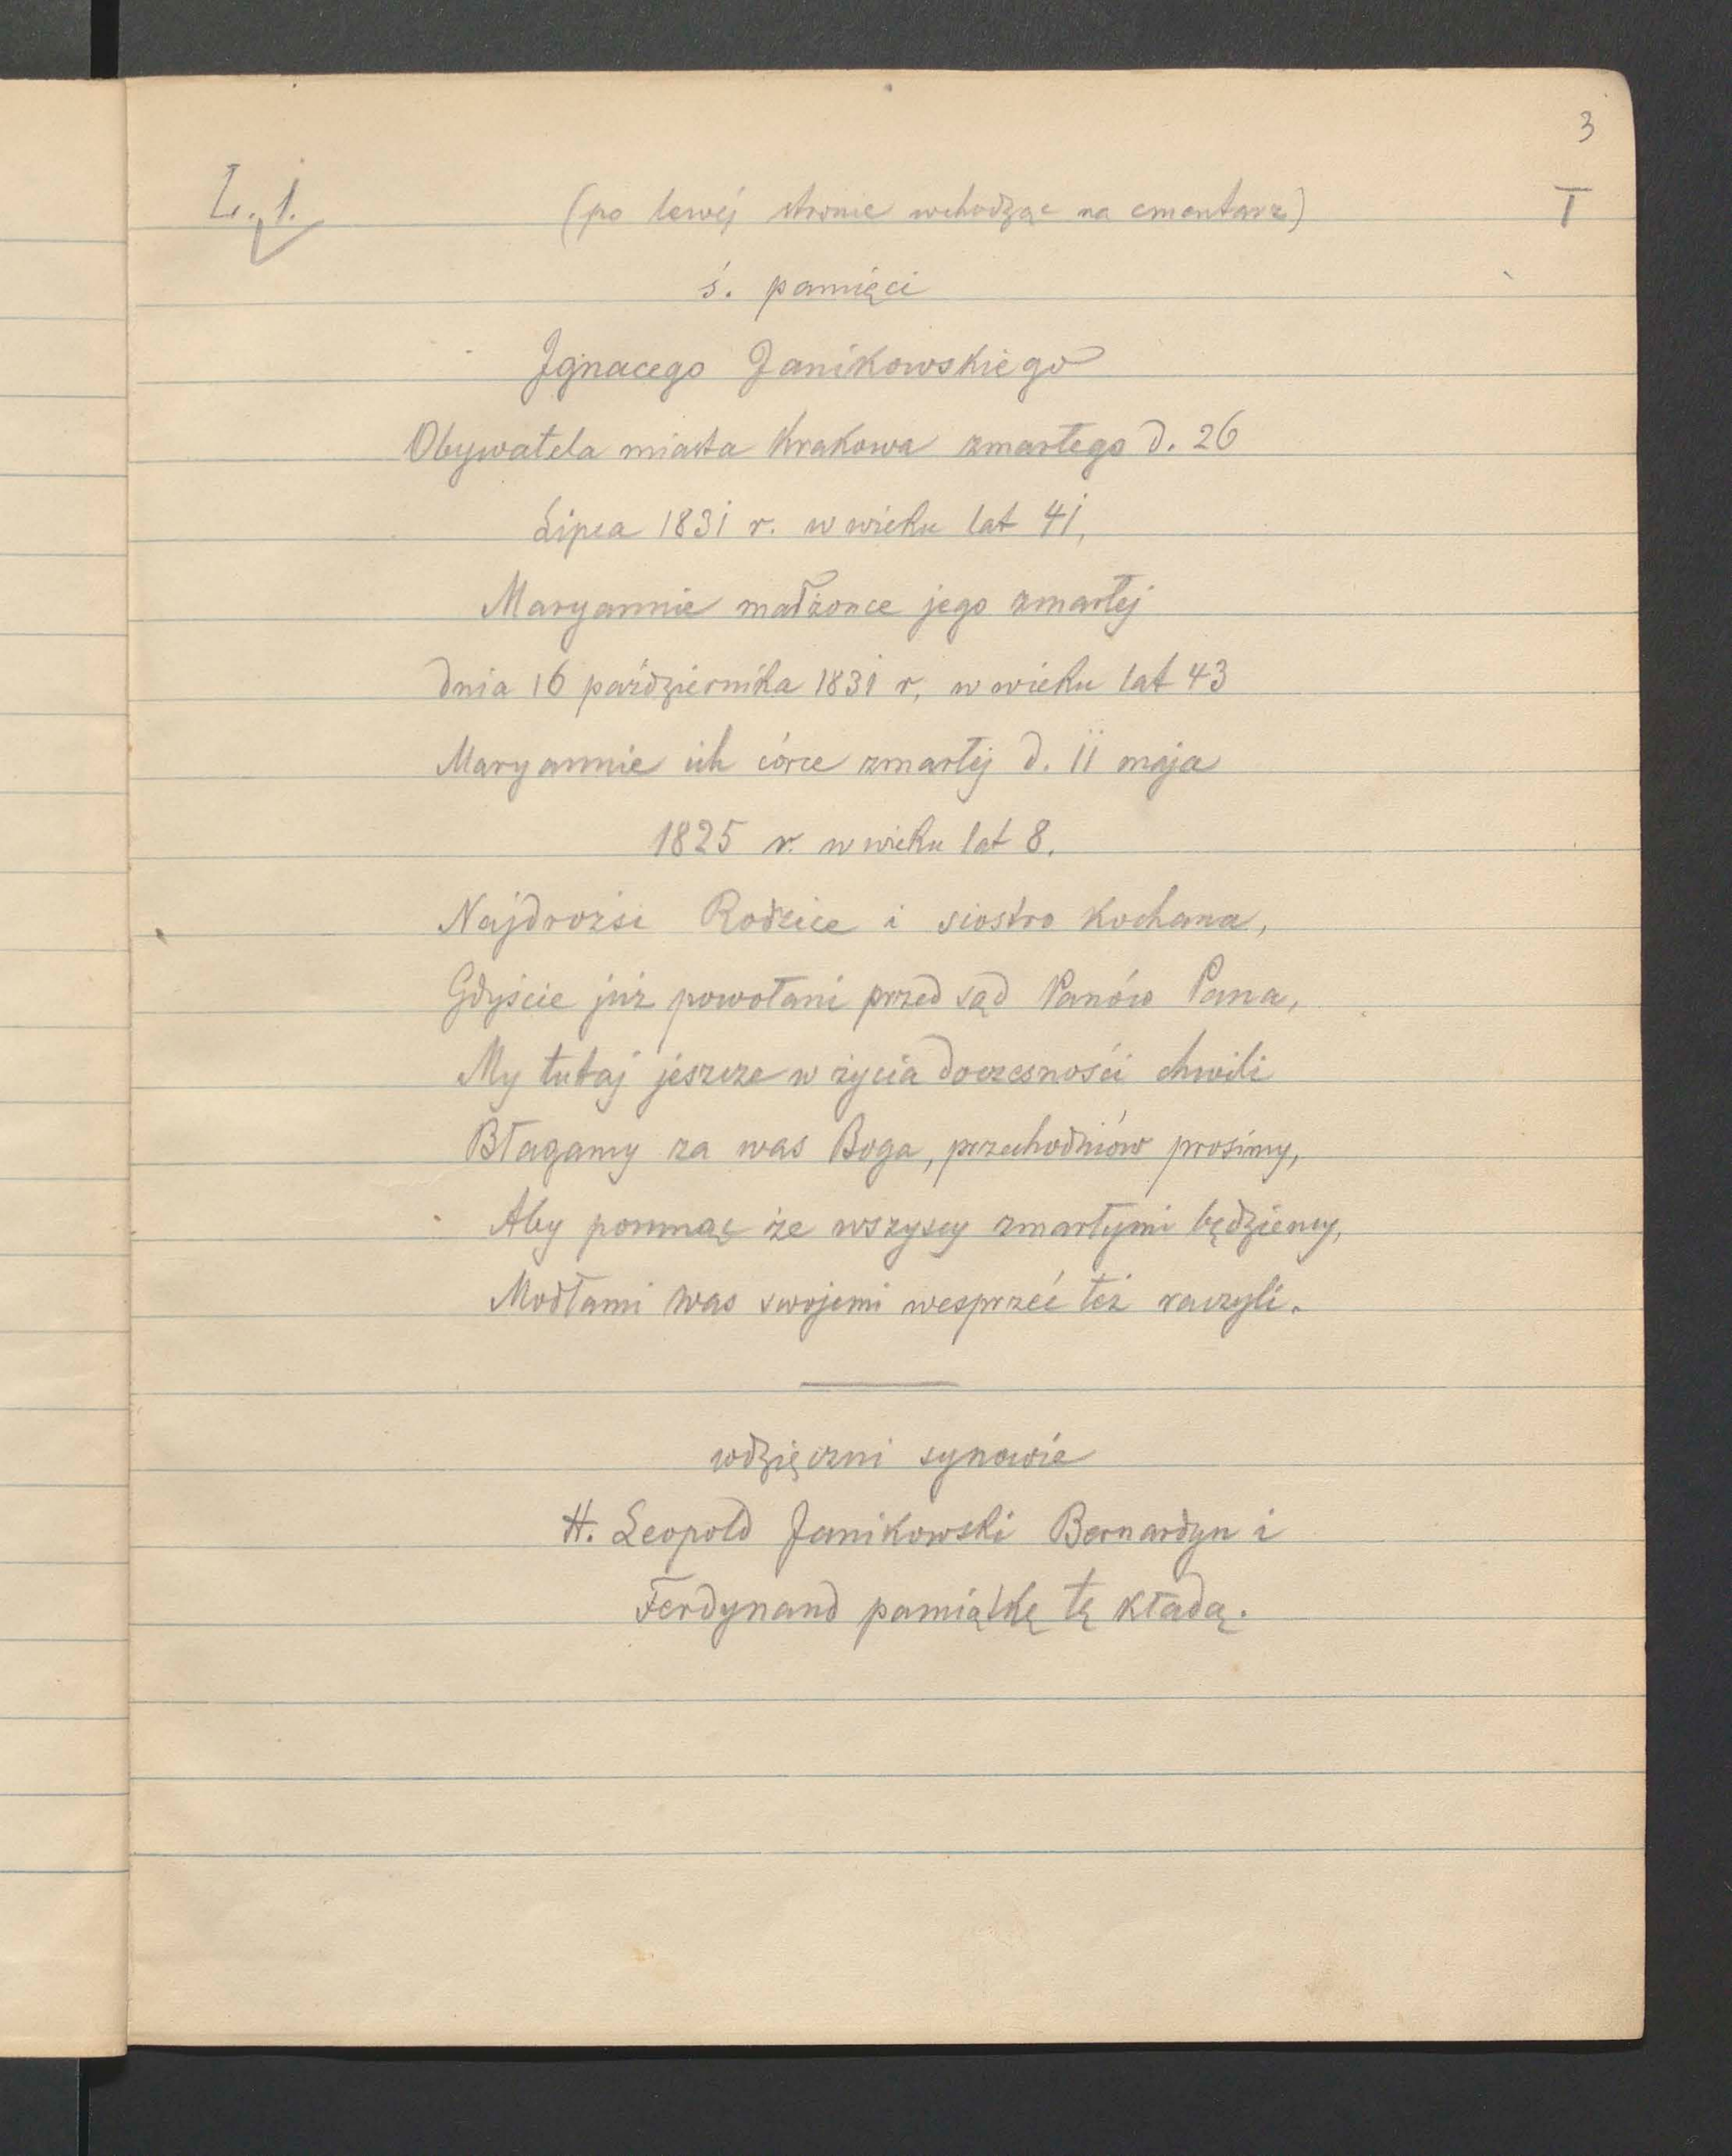 3
L. 1.
(po lewéj stronie wchodząc na cmentarz)
I
ś. pamięci
Ignacego Janikowskiego
Obywatela miasta Krakowa zmarłego d. 26
Lipca 1831 r. w wieku lat 41,
Maryannie małżonce jego zmarłej
dnia 16 października 1831 r, w wieku lat 43
Maryannie ich córce zmarłej d. 11 maja
1825 r. w wieku lat 8.
Najdrożsi Rodzice i siostro kochana,
Gdyście już powołani przed sąd Panów Pana,
My tutaj jeszcze w życia doczesności chwili
Błagamy za was Boga, przechodniów prosimy,
Aby pomnąc że wszyscy zmarłymi będziemy,
Modłami was swojemi wesprzeć też raczyli.
wdzięczni synowie
H. Leopold Janikowski Bernardyn i
Ferdynand pamiątkę tę kładą.